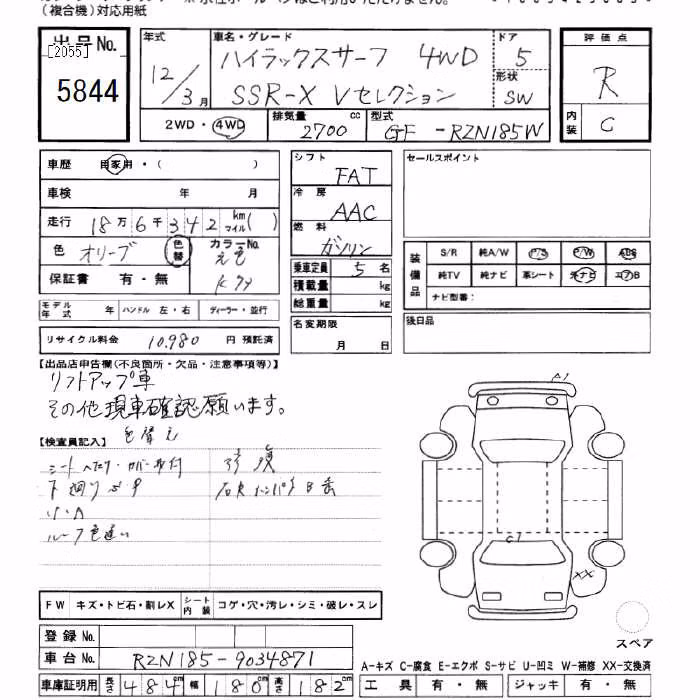 (複合機)対応用紙
出品No.
[2055]
5844
年式
12/3月
車名・グレード
ハイラックスサーフ 4WD
SSR-X Vセレクション
ドア
5
形状
SW
2WD・4WD
排気量 2700 cc
型式 GF-RZN185W
評価点
R
内装
C
車歴 自家用・( )
車検 年 月
走行 18万6千342 km マイル( )
色 オリーブ 色替
カラーNo.
元色
保証書 有・無
モデル年式 年
ハンドル 左・右
ディーラー・並行
リサイクル料金 10,980 円 預託済
シフト
FAT
冷房
AAC
燃料
ガソリン
乗車定員 5 名
積載量 kg
総重量 kg
名変期限
月 日
セールスポイント
装備品
S/R 純A/W P/S P/W ABS
純TV 純ナビ 革シート エアB
ナビ型番:
後日品
【出品店申告欄(不良箇所・欠品・注意事項等)】
リフトアップ車
その他現車確認願います。
【検査員記入】
色替え
シートへたり・カバー取付
下廻りサビ
ルーフ色違い
修復
A1
G1
XX
FW キズ・トビ石・割レX
シート内装 コゲ・穴・汚レ・シミ・破レ・スレ
登録No.
車台No. RZN185-9034871
車庫証明用 長さ 484cm 幅 180cm 高さ 182cm
スペア
A-キズ C-腐食 E-エクボ S-サビ U-凹ミ W-補修 XX-交換済
工具 有・無 ジャッキ 有・無